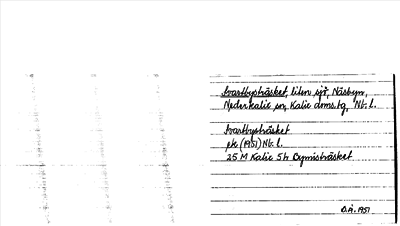 Svartbyträsket, liten sjö, Näsbyn,
Nederkalix sn, Kalix doms.tg, Nb. l.
Svartbyträsket
pk (1951) Nb. l.
25 M Kalix 5h Bymisträsket
O.A. 1951